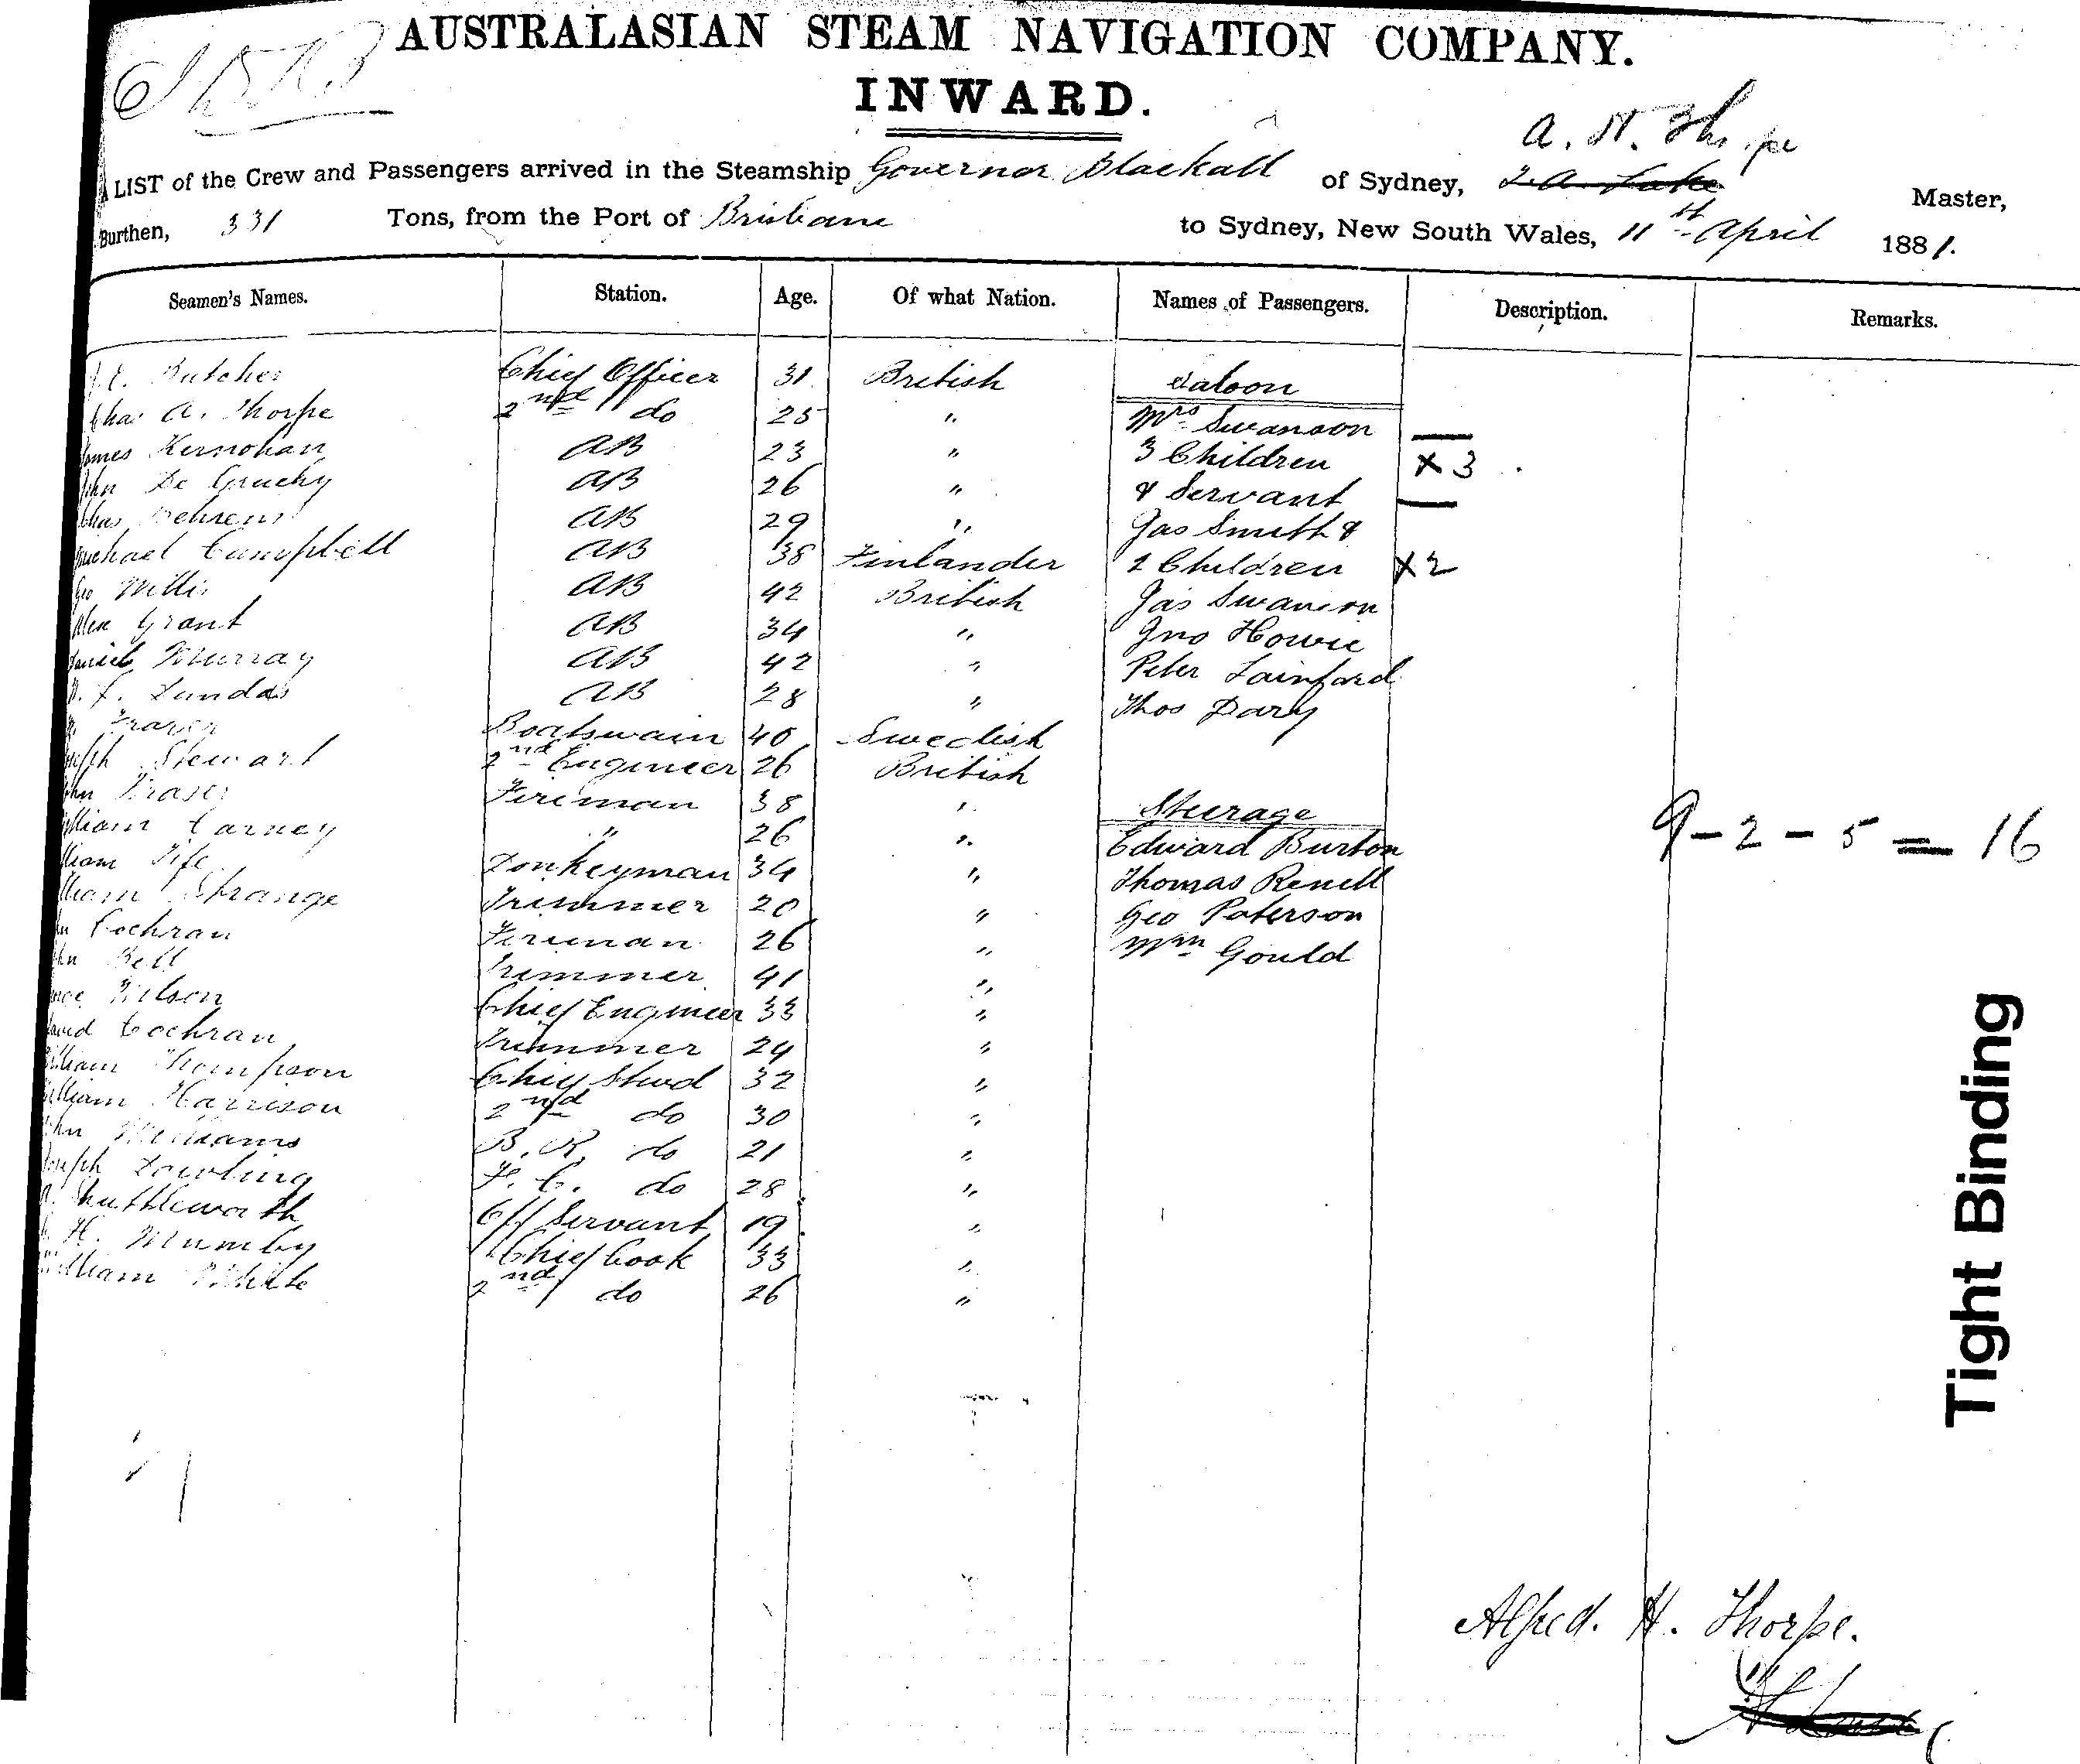 AUSTRALASIAN STEAM NAVIGATION COMPANY.
INWARD.
A. H. Thorpe
LIST of the Crew and Passengers arrived in the Steamship Governor Blackall of Sydney, Master,
Burthen, 331 Tons, from the Port of Brisbane to Sydney, New South Wales, 11th April 1881.
Seamen's Names. Station. Age. Of what Nation. Names of Passengers. Description. Remarks.
E. Butcher Chief Officer 31 British Saloon
Chas A. Thorpe 2nd do 25 " Mrs Swanson
James Kernohan AB 23 " 3 Children x 3
John De Gruchy AB 26 " & Servant
Chas Behrens AB 29 " Jas Smith &
Michael Campbell AB 38 Finlander 2 Children x 2
Geo Willis AB 42 British Jas Swanson
Alex Grant AB 34 " Jno Howie
Daniel Murray AB 42 " Peter Lainford
Dundas AB 28 " Thos Dary
Boatswain 40 Swedish
Joseph Stewart 2nd Engineer 26 British
John Fraser Fireman 38 " Steerage
William Carney " 26 " Edward Burton
William Fife Donkeyman 34 " Thomas Renell
William Strange Trimmer 20 " Geo Paterson
Cochran Fireman 26 " Wm Gould
John Bell Trimmer 41 "
Wilson Chief Engineer 33 "
David Cochran Trimmer 24 "
William Thompson Chief Stwd 32 "
William Harrison 2nd do 30 "
John Williams B. R. do 21 "
Joseph Dowling F. C. do 28 "
Shuttleworth Off Servant 19 "
H. Mumby Chief Cook 33 "
William White 2nd do 26 "
9 - 2 - 5 = 16
Tight Binding
Alfred. H. Thorpe.